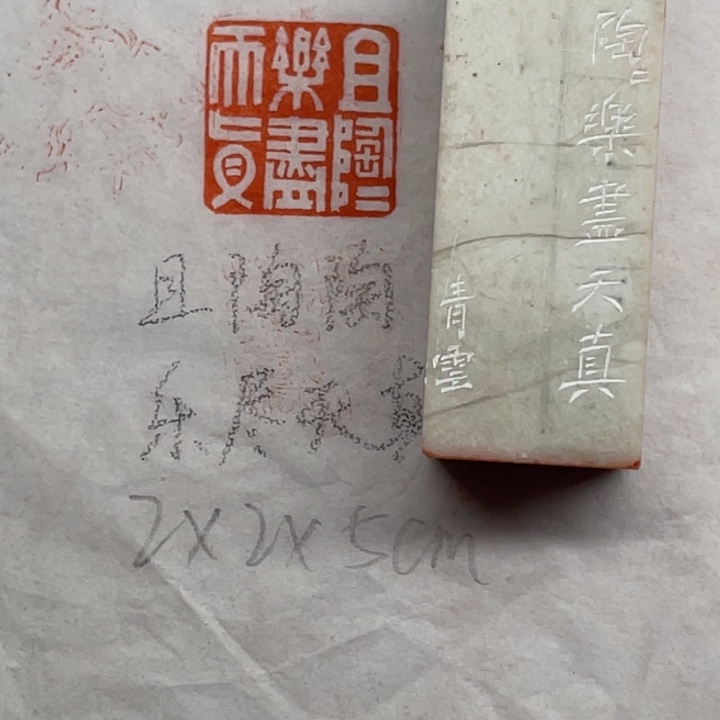 且陶=
樂盡
天真
陶=樂盡天真
青雲
且陶陶
乐尽天真
2x2x5cm